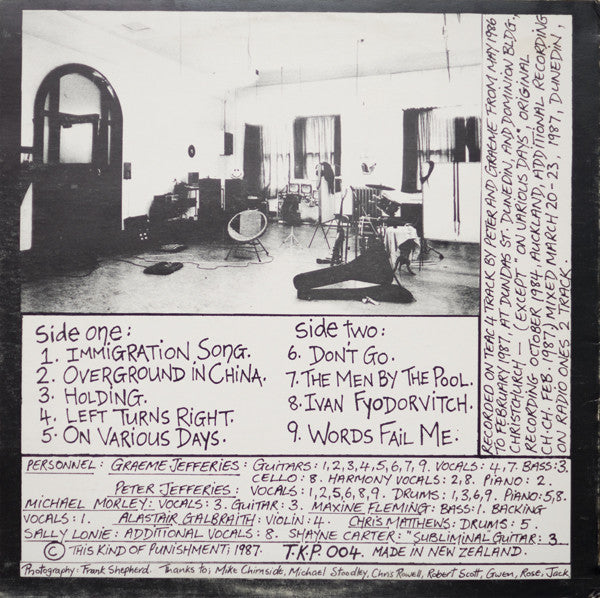 Side one:
1. Immigration Song.
2. Overground in China.
3. Holding.
4. Left Turns Right.
5. On Various Days.
Side two:
6. Don't Go.
7. The Men By The Pool.
8. Ivan Fyodorvitch.
9. Words Fail Me.
Recorded on Teac 4 track by Peter and Graeme from May 1986
to February 1987. At Dundas St. Dunedin, and Dominion Bldg.,
Christchurch, — (Except "On Various Days" original
recording October 1984 Auckland, additional recording
CH.CH. Feb. 1987.) Mixed March 20-23, 1987, Dunedin,
on Radio Ones 2 track.
Personnel: Graeme Jefferies: Guitars: 1,2,3,4,5,6,7,9. Vocals: 4,7. Bass: 3.
Cello: 8. Harmony Vocals: 2,8. Piano: 2.
Peter Jefferies: Vocals: 1,2,5,6,8,9. Drums: 1,3,6,9. Piano: 5,8.
Michael Morley: Vocals: 3. Guitar: 3. Maxine Fleming: Bass: 1. Backing
Vocals: 1. Alastair Galbraith: Violin: 4. Chris Matthews: Drums: 5.
Sally Lonie: Additional Vocals: 8. Shayne Carter: "Subliminal Guitar: 3.
© This Kind of Punishment; 1987. T.K.P. 004. Made in New Zealand.
Photography: Frank Shepherd. Thanks to; Mike Chirnside, Michael Stoodley, Chris Rowell, Robert Scott, Gwen, Rose, Jack